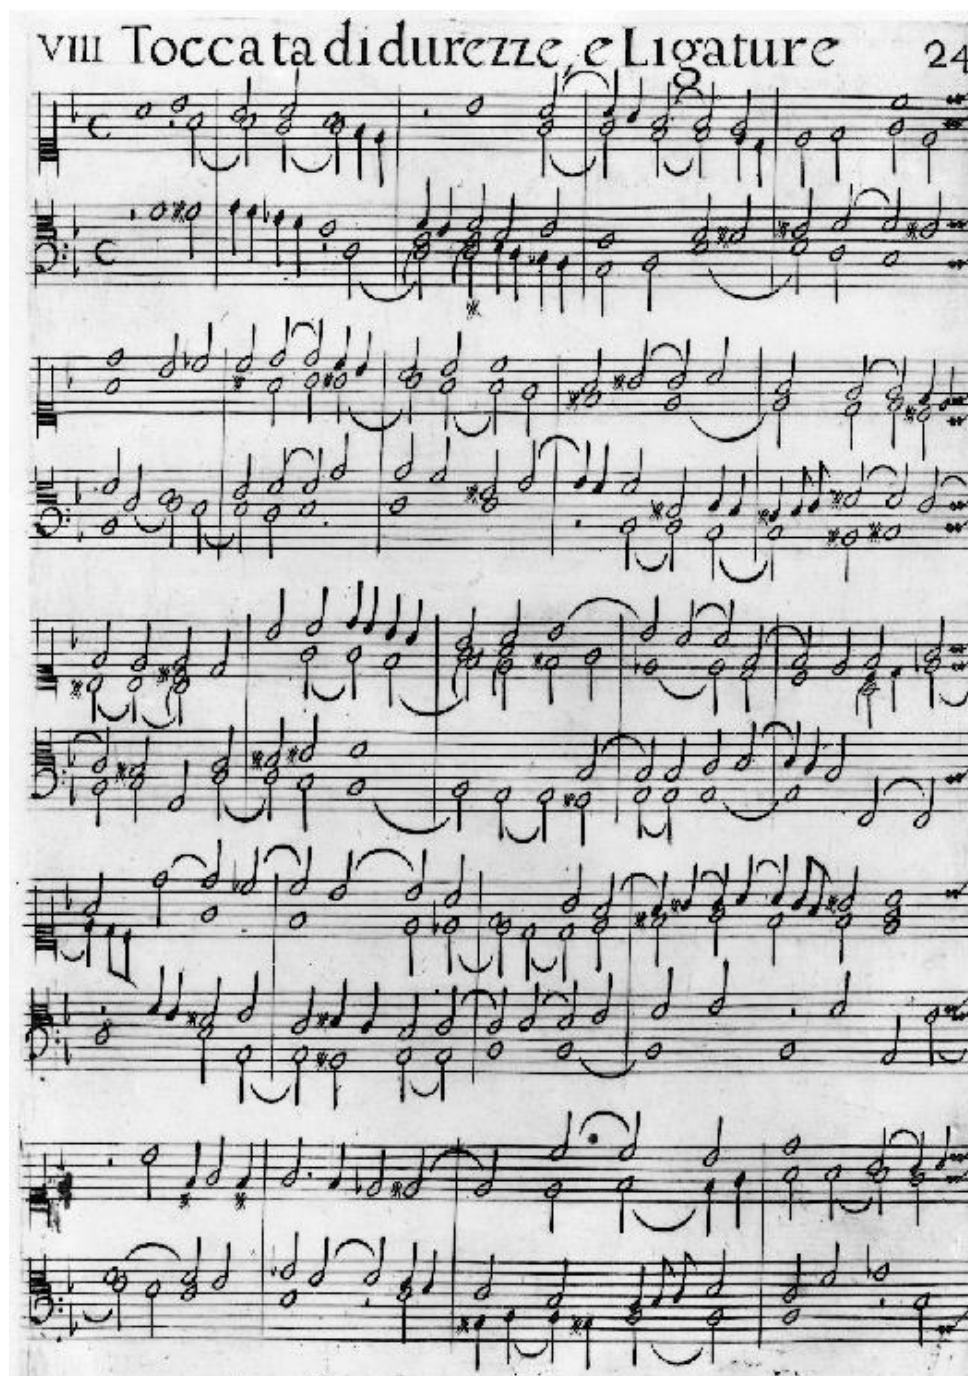 VIII Toccata di durezze, e Ligature 24